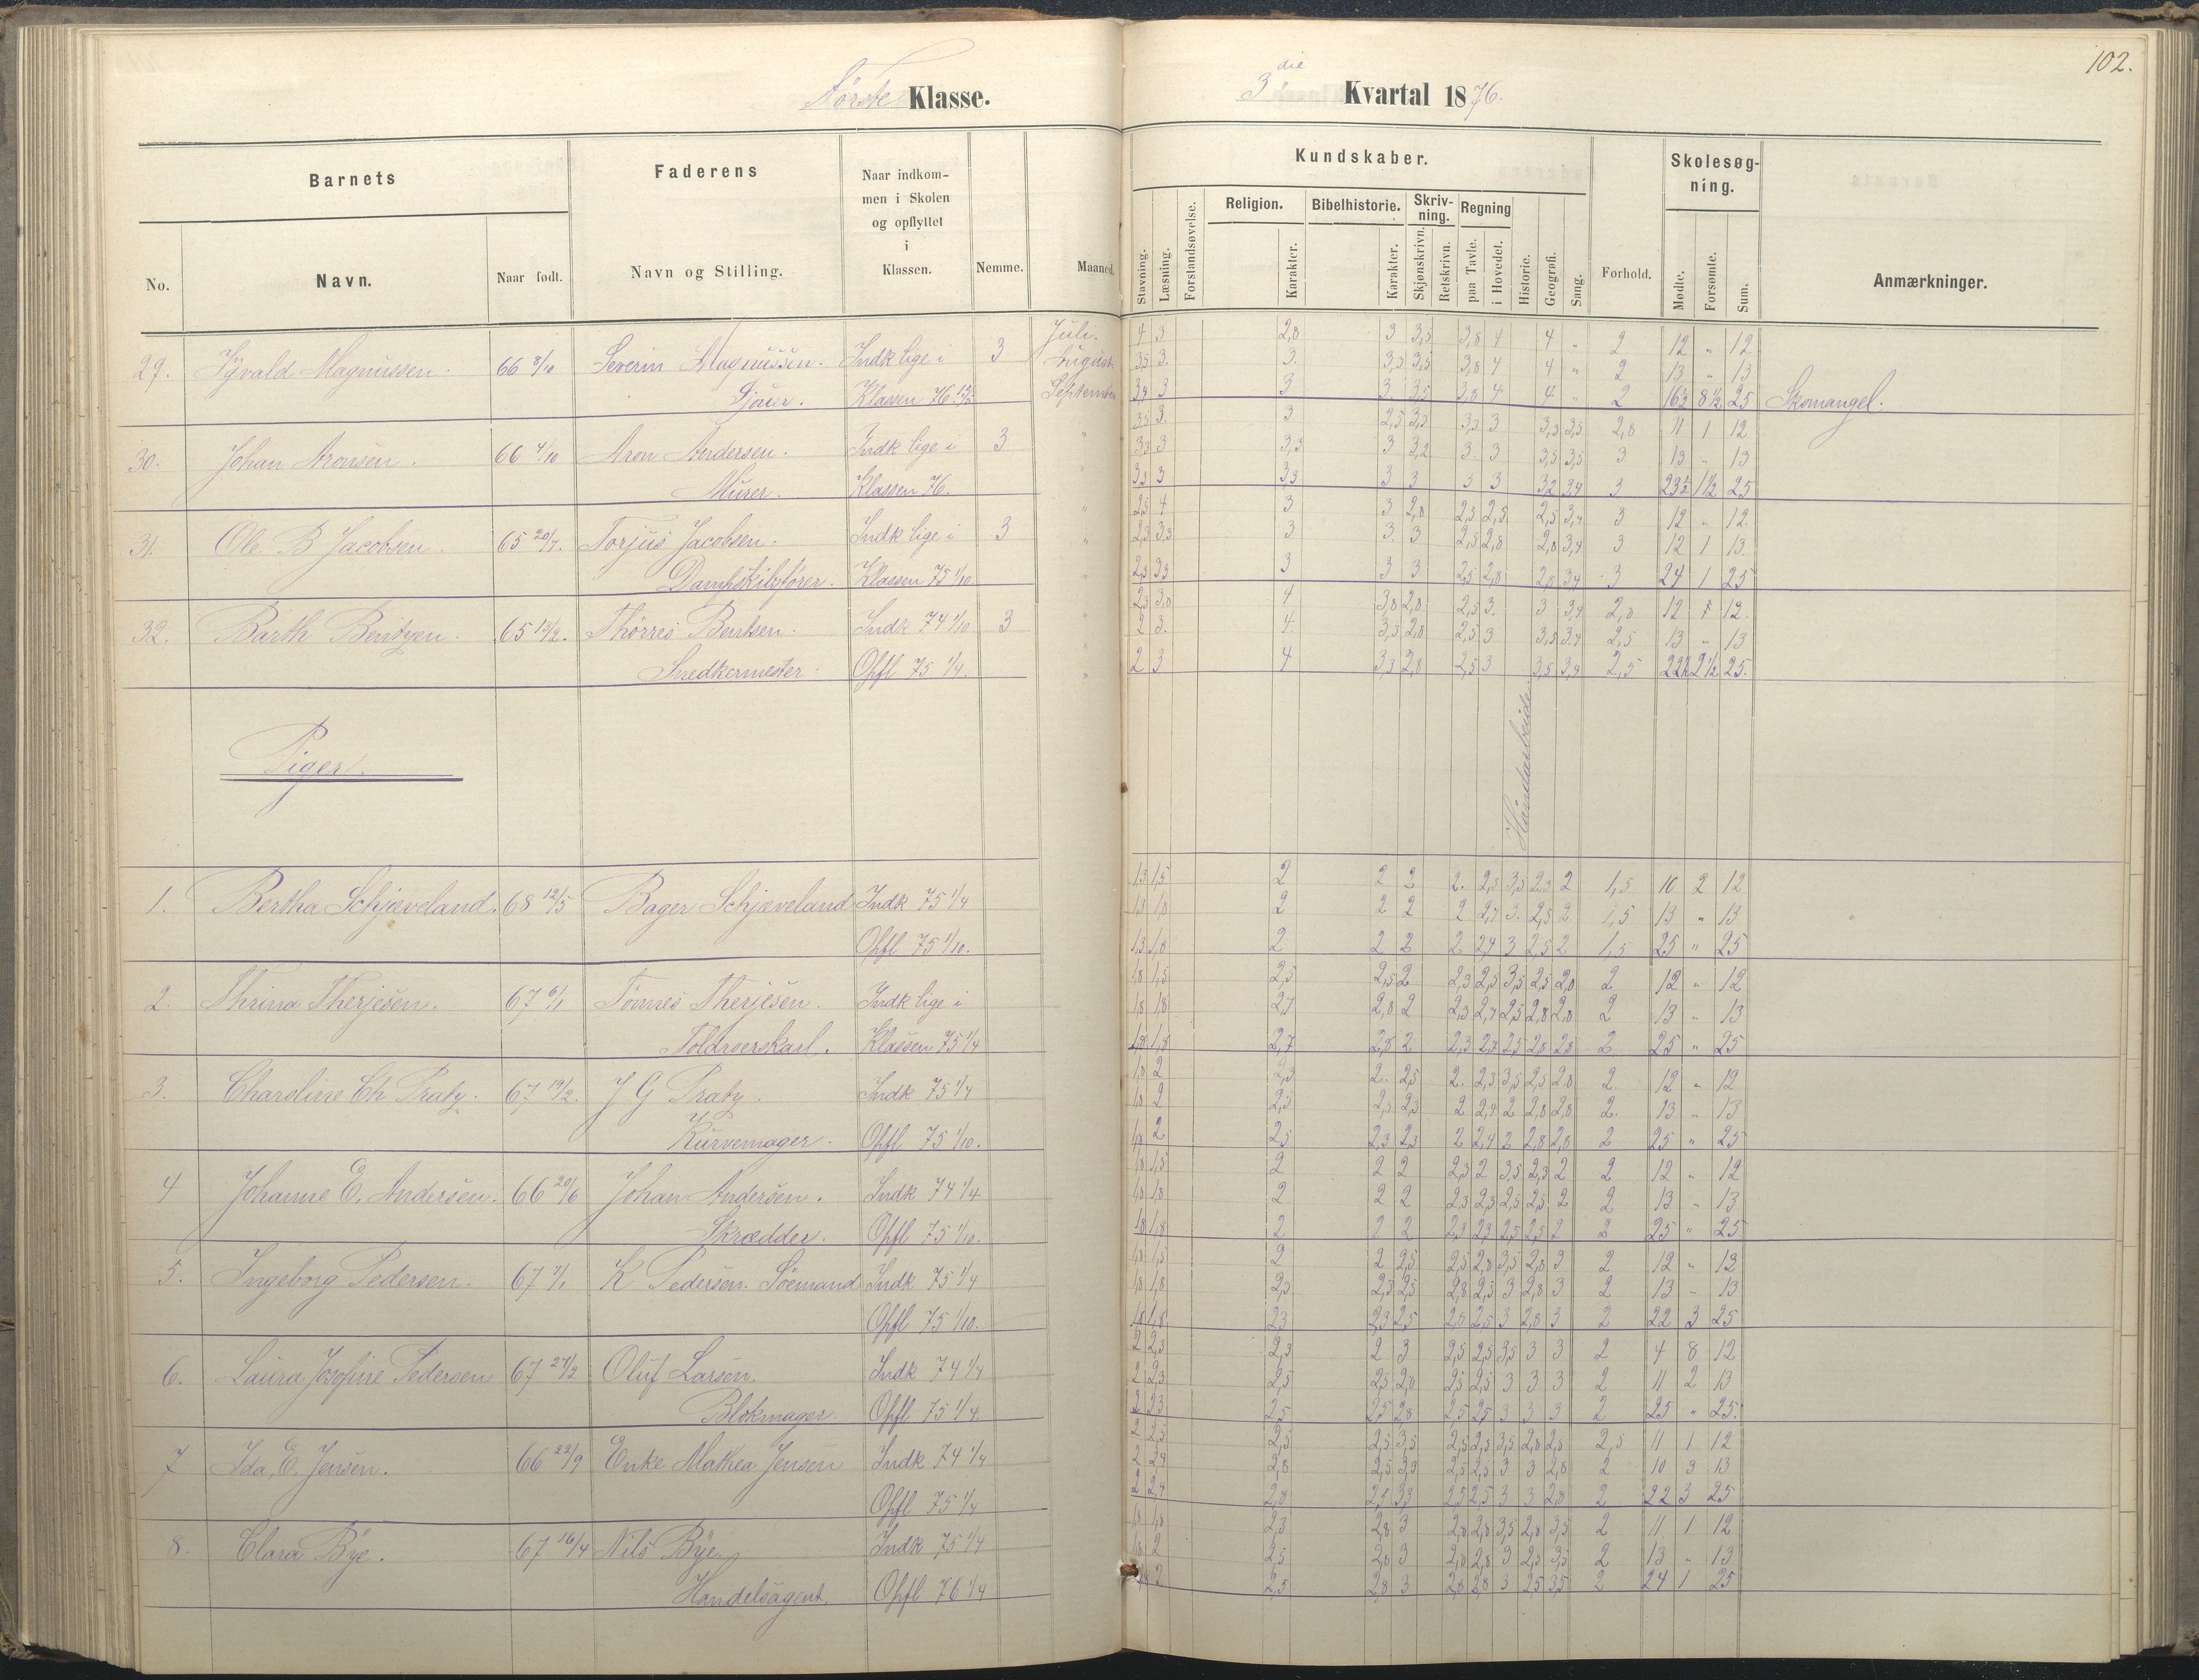 102.
Første Klasse.
3die Kvartal 1876.
Barnets
Faderens
Naar indkommen i Skolen og opflyttet i Klassen.
Nemme.
Maaned.
Kundskaber.
Forhold.
Skolesøgning.
Anmærkninger.
No.
Navn.
Naar født.
Navn og Stilling.
Stavning.
Læsning.
Forstandsøvelse.
Religion.
Karakter.
Bibelhistorie.
Karakter.
Skrivning.
Skjønskrivn.
Retskrivn.
Regning
paa Tavle.
i Hovedet.
Historie.
Geografi.
Sang.
Mødte.
Forsømte.
Sum.
29. Syvald Magnussen. 66 8/10 Severin Magnussen. Indk lige i 3 Juli. 4 3 2,8 3 3,5 3,8 4 4 " 2 12 " 12
August 3,5 3. 3. 3,5 3,5 3,8 4 4 " 2 13 " 13
Sjouer. Klassen 76 September 3 3 3. 3,5 3,8 4 4 " 2 16½ 8½ 25 Skomangel.
30. Johan Aronsen. 66 4/10 Aron Andersen. Indk lige i 3 " 3,5 3. 3 2,5 3,5 3,3 3 3,5 3,5 2,8 11 1 12
3,3 3 3,3 3 3,2 3. 3 3,5 3,5 3 13 " 13
Murer. Klassen 76. 3,3 3 3,3 3 3 3 3 3,2 3,4 3 23½ 1½ 25
31. Ole B Jacobsen. 65 20/7. Torjus Jacobsen. Indk lige i 3 " 2,5 4 3 3 2,8 2,5 2,5 2,5 3,4 3 12 " 12.
2,3 3,3 3 3. 3 2,5 2,8 2,8 3,4 3 12 1 13
Dampskibsfører. Klassen 75 1/10 2,3 3,3 3 3 3 2,5 2,8 2,8 3,4 3 24 1 25
32. Barth Bentzen. 65 13/2. Thørres Bentsen. Indk 74 1/10 3 " 2,3 3,0 4 3,8 2,8 2,5 3. 3 3,4 2,8 12 " 12.
2 3. 4. 3,3 2,8 2,5 3 3,5 3,4 2,5 13 " 13
Snedkermester. Opfl 75 1/4. 2 3 4 3,3 2,8 2,5 3 3,5 3,4 2,5 22½ 2½ 25.
Piger.
Håndarbeide
1. Bertha Schjæveland. 68 12/5 Bager Schjæveland Indk 75 1/4 1,3 1,5 2 2 2 2. 2,5 3,5 2,3 2 1,5 10 2 12
1,3 1,8 2 2 2 2 2,4 3. 2,5 2 1,5 13 " 13
Opfl 75 1/10. 1,3 1,8 2 2 2 2 2,4 3 2,5 2 1,5 25 " 25
2. Thrina Therjesen. 67 6/1 Tønnes Therjesen. Indk lige i 1,8 1,5 2,5 2,5 2 2,3 2,5 3,5 2,5 2,8 2 12 " 12
1,8 1,8 2,7 2,8 2 2,3 2,7 2,5 2,8 2,8 2 13 " 13
Toldroerskarl. Klassen 75 1/4 1,8 1,8 2,7 2,8 2 2,3 2,7 2,5 2,8 2,8 2 25 " 25
3. Charoline Ch Pratz. 67 19/2. J G Pratz. Indk 75 1/4 1,8 2 2,3 2. 2,5 2. 2,3 3,5 2,5 2,8 2. 12 " 12
1,8 2 2,5 2,3 2,3 2 2,4 2 2,8 2,8 2. 13 " 13
Kurvemager. Opfl 75 1/10. 1,8 2 2,5 2,3 2,3 2 2,4 2 2,8 2,8 2 25 " 25
4 Johanne E. Andersen. 66 20/6 Johan Andersen. Indk 74 1/4 1,8 1,5 2 2 2 2,3 2 3,5 2,3 2 2 12 " 12
1,8 1,8 2 2 2 2,3 2,3 2,5 2,5 2 2 13 " 13
Skrædder. Opfl 75 1/10. 1,8 1,8 2 2 2 2,3 2,3 2,5 2,5 2 2 25 " 25
5. Ingeborg Pedersen. 67 7/1 K Pedersen. Söemand Indk 75 1/4 1,8 1,5 2 2 2,5 2,5 2,8 3,5 2,8 3 2 12 " 13
1,8 1,8 2,3 2,3 2,5 2,8 2,5 3 2,8 3 2 13 " 13
Opfl 75 1/10. 1,8 1,8 2,3 2,3 2,5 2,8 2,5 3 2,8 3 2 22 3 25
6. Laura Josefine Pedersen 67 27/2 Oluf Larsen. Indk 74 1/4 2 2,3 2,3 2 3 2,5 2,5 3,5 3 3 2 4 8 12
2 2,3 2,5 2,5 2,8 2,5 2,5 3 3 3 2 11 2 13
Blokmager. Opfl 75 1/4. 2 2,3 2,5 2,5 2,8 2,5 2,5 3 3 3 2 25 " 25.
7 Ida, E. Jensen. 66 22/9 Enke Mathea Jensen Indk 74 1/4 2 2,5 2,5 2,5 3,5 2,5 2,5 3,5 2,8 2,8 2,5 11 1 12
2 2,4 2,8 2,5 3,3 2,5 2,5 3 3 2,8 2 10 3 13
Opfl 75 1/4 2 2,4 2,8 2,5 3,3 2,5 2,5 3 3 2,8 2 22 3 25
8. Clara Bÿe. 67 16/4 Nils Bÿe. Indk 75 1/4 1,8 1,8 2,3 2,8 3 2,8 2,8 3,5 2,8 3,5 2 11 1 12
1,8 2 2,5 2,8 3 2,8 2,8 3 2,5 3,5 2 13 " 13
Handelsagent. Opfl 76 1/4 2 2,5 2,8 3 2,8 2,8 3 2,5 3,5 2 24 1 25